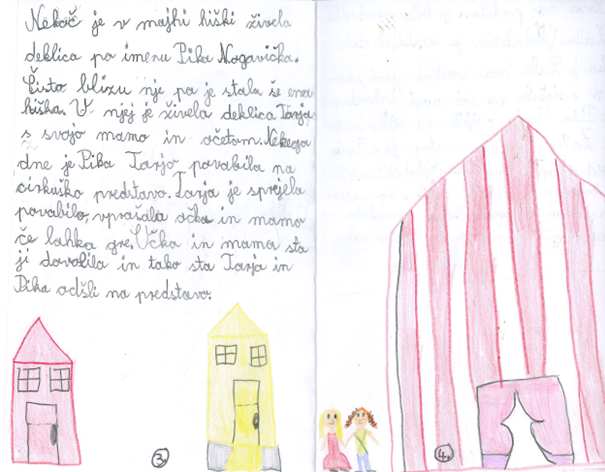 Nekoč je v majhni hiški živela
deklica po imenu Pika Nogavička.
Čisto blizu nje pa je stala še ena
hiška. V njej je živela deklica Tanja,
s svojo mamo in očetom. Nekega
dne je Pika Tanjo povabila na
cirkuško predstavo. Tanja je sprejela
povabilo, vprašala očka in mamo
če lahko gre. Očka in mama sta
ji dovolila in tako sta Tanja in
Pika odšli na predstavo.
3.
4.